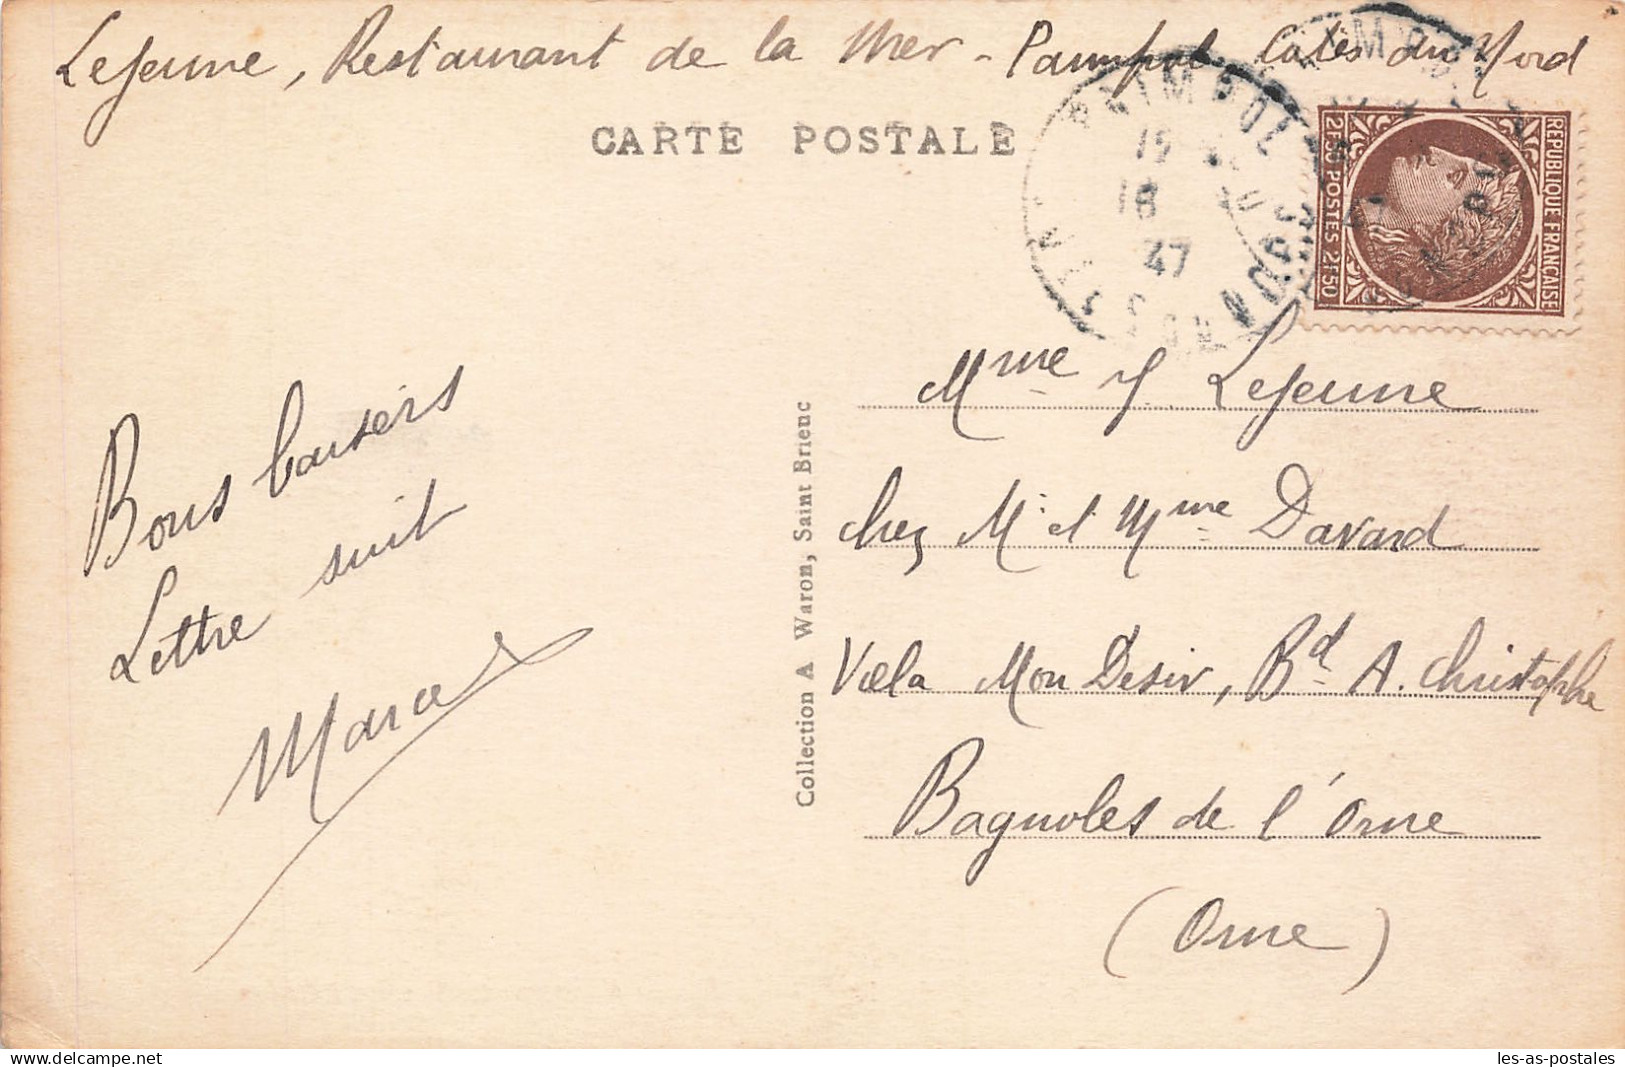 Lejeune, Restaurant de la Mer - Paimpol Côtes du Nord
CARTE POSTALE
PAIMPOL
18
47
CÔTES DU NORD
REPUBLIQUE FRANCAISE
2F50 POSTES 2F50
Bons baisers
Lettre suit
Marcel
Collection A Waron, Saint Brieuc
Mme J. Lejeune
chez Mr et Mme Davard
Villa Mon Desir, Bd A. Christophe
Bagnoles de l'Orne
(Orne)
les-as-postales
delcampe.net